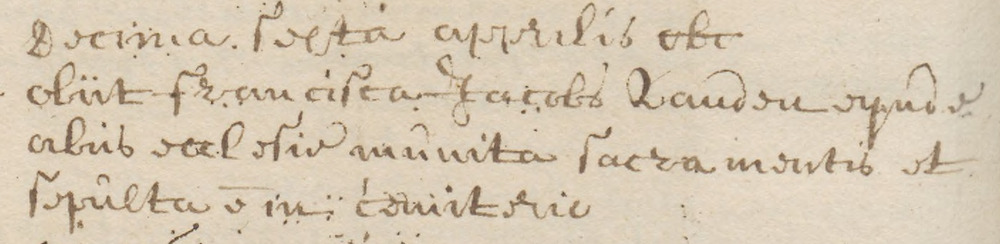 Decima. sexta apprilis obc
obiit francisca Jacobs Vanden eynde
abus ecclesie munita sacramentis et
sepulta e in cemiterio